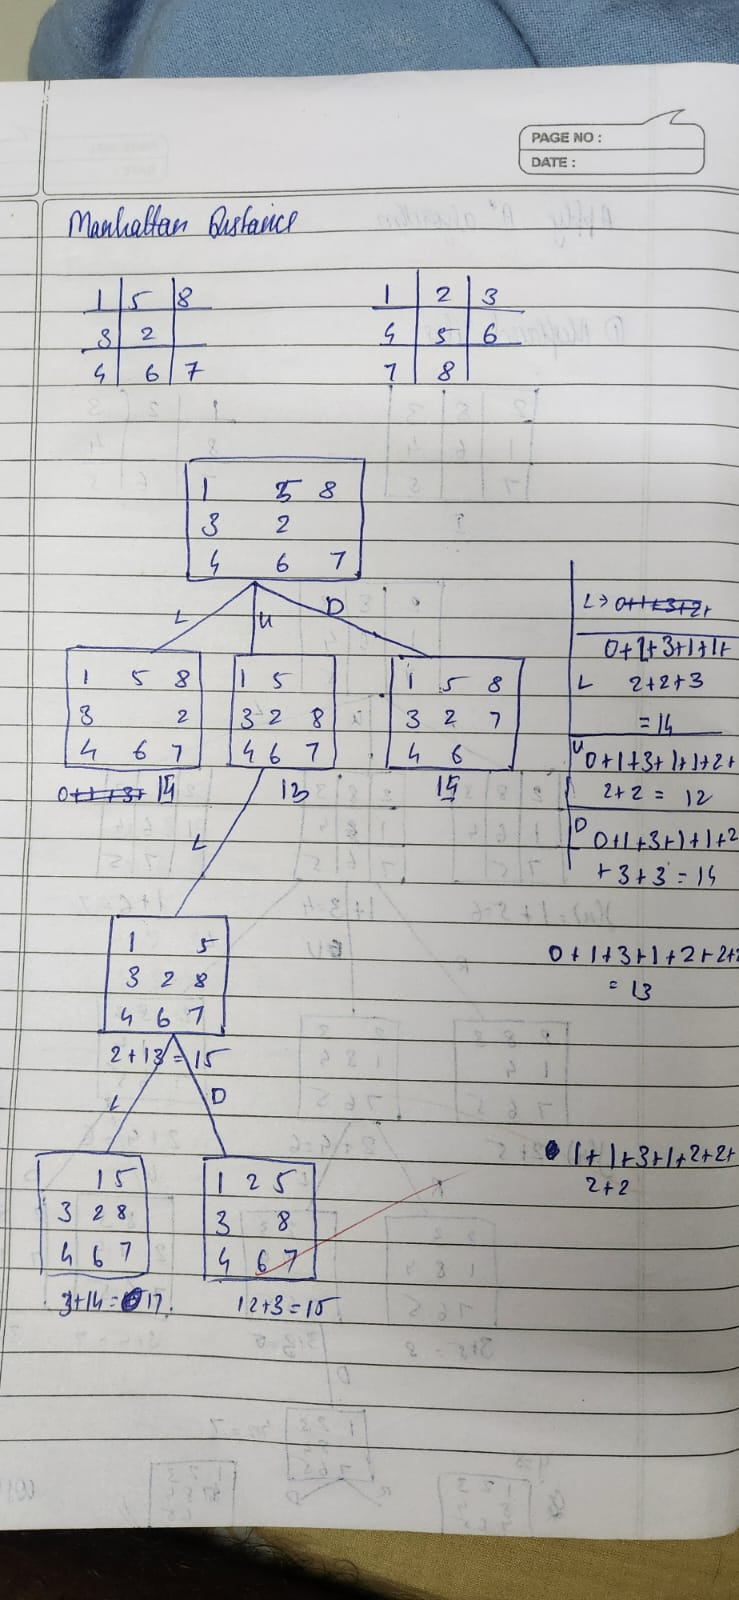 PAGE NO :
DATE :
Manhattan Distance
1 5 8
3 2
4 6 7
1 2 3
4 5 6
7 8
1 5 8
3 2
4 6 7
L U D
1 5 8
3 2
4 6 7
14
1 5
3 2 8
4 6 7
12
1 5 8
3 2 7
4 6
14
L → 0+1+3+2+
0+1+3+1+1+
L 2+2+3
=14
U 0+1+3+1+1+2+
2+2 = 12
D 0+1+3+1+1+2
+3+3=14
L
1 5
3 2 8
4 6 7
2+13=15
0+1+3+1+2+2+2
= 13
L D
1 5
3 2 8
4 6 7
3+14=17.
1 2 5
3 8
4 6 7
12+3=15
1+1+3+1+2+2+
2+2